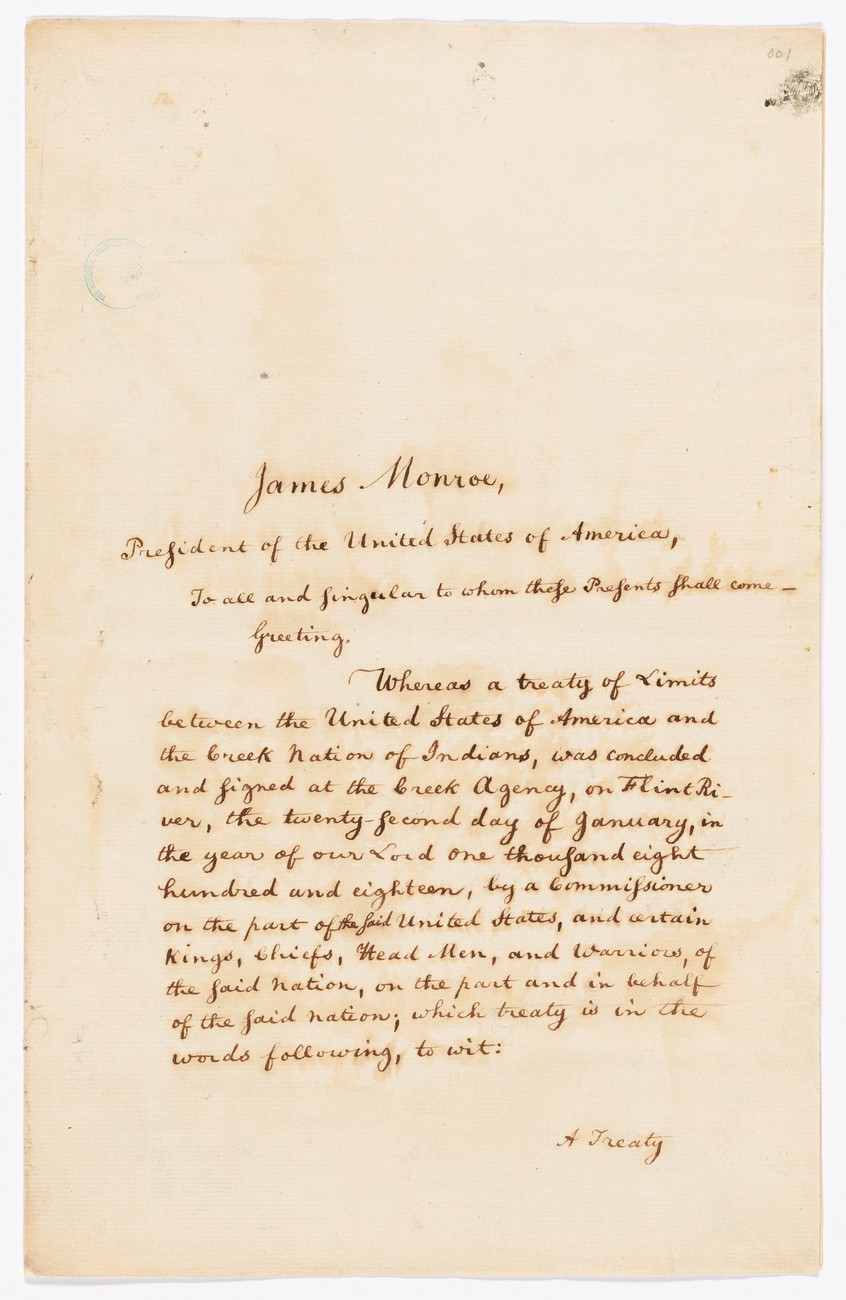 001
James Monroe,
President of the United States of America,
To all and singular to whom these Presents shall come –
Greeting.
Whereas a treaty of Limits
between the United States of America and
the Creek Nation of Indians, was concluded
and signed at the Creek Agency, on Flint Ri-
ver, the twenty-second day of January, in
the year of our Lord one thousand eight
hundred and eighteen, by a Commissioner
on the part of the said United States, and certain
Kings, Chiefs, Head Men, and Warriors, of
the said nation, on the part and in behalf
of the said nation; which treaty is in the
words following, to wit:
A Treaty